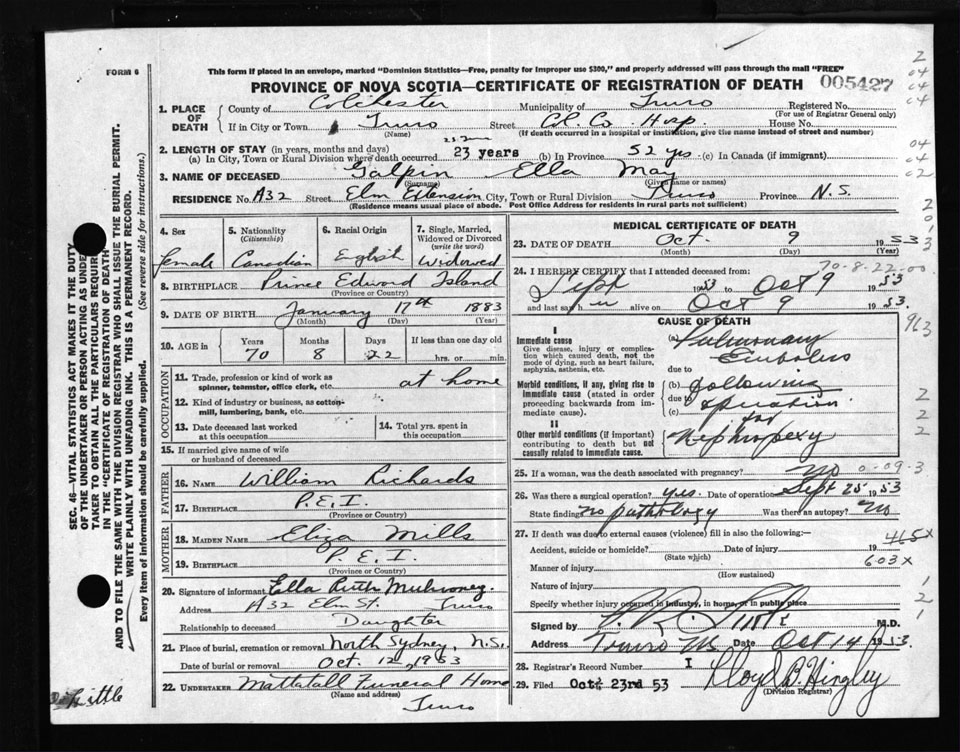 FORM 6
This form if placed in an envelope, marked "Dominion Statistics—Free, penalty for improper use $300," and properly addressed will pass through the mail "FREE"
PROVINCE OF NOVA SCOTIA—CERTIFICATE OF REGISTRATION OF DEATH 005427
1. PLACE OF DEATH
County of Colchester Municipality of Truro Registered No.
(For use of Registrar General only)
If in City or Town Truro Street Col. Co. Hosp. House No.
(Name) (If death occurred in a hospital or institution, give the name instead of street and number)
2. LENGTH OF STAY (in years, months and days)
(a) In City, Town or Rural Division where death occurred 23 years (b) In Province 52 yrs (c) In Canada (if immigrant)
3. NAME OF DECEASED Galpin Ella May
(Surname) (Given name or names)
RESIDENCE No. A32 Street Elm Extension City, Town or Rural Division Truro Province N.S.
(Residence means usual place of abode. Post Office Address for residents in rural parts not sufficient)
4. Sex
female
5. Nationality
(Citizenship)
Canadian
6. Racial Origin
English
7. Single, Married, Widowed or Divorced
(write the word)
Widowed
8. BIRTHPLACE Prince Edward Island
(Province or Country)
9. DATE OF BIRTH January 17th 1883
(Month) (Day) (Year)
10. AGE in Years Months Days If less than one day old
70 8 22 hrs. or min.
OCCUPATION
11. Trade, profession or kind of work as spinner, teamster, office clerk, etc. at home
12. Kind of industry or business, as cotton-mill, lumbering, bank, etc.
13. Date deceased last worked at this occupation
14. Total yrs. spent in this occupation
15. If married give name of wife or husband of deceased
FATHER
16. NAME William Richards
17. BIRTHPLACE P.E.I.
(Province or Country)
MOTHER
18. MAIDEN NAME Eliza Mills
19. BIRTHPLACE P.E.I.
(Province or Country)
20. Signature of informant Ella Ruth
Address A32 Elm St. Truro
Relationship to deceased Daughter
21. Place of burial, cremation or removal North Sydney, N.S.
Date of burial or removal Oct. 12, 1953
22. UNDERTAKER Mattatall Funeral Home
(Name and address)
Truro
MEDICAL CERTIFICATE OF DEATH
23. DATE OF DEATH Oct. 9 1953
(Month) (Day) (Year)
70-8-22-00
24. I HEREBY CERTIFY that I attended deceased from:
Sept 1953 to Oct 9 1953
and last saw her alive on Oct 9 1953.
CAUSE OF DEATH
963
I
Immediate cause
Give disease, injury or complication which caused death, not the mode of dying, such as heart failure, asphyxia, asthenia, etc.
(a) Pulmonary Embolus
due to
Morbid conditions, if any, giving rise to immediate cause (stated in order proceeding backwards from immediate cause).
(b) following
due to operation
(c) for
II
Other morbid conditions (if important) contributing to death but not causally related to immediate cause.
Nephropexy
25. If a woman, was the death associated with pregnancy? No 0-09-3
26. Was there a surgical operation? yes. Date of operation Sept 25 1953
State finding No pathology Was there an autopsy? No
27. If death was due to external causes (violence) fill in also the following:— 465X
Accident, suicide or homicide? Date of injury 19
(State which) 603X
Manner of injury
(How sustained)
Nature of injury
Specify whether injury occurred in industry, in home, or in public place
Signed by M.D.
Address Truro NS. Date Oct 14 1953
28. Registrar's Record Number I
29. Filed Oct. 23rd 53 Lloyd B. Hingley
(Division Registrar)
SEC. 46—VITAL STATISTICS ACT MAKES IT THE DUTY
OF THE UNDERTAKER OR PERSON ACTING AS UNDERTAKER TO OBTAIN ALL THE PARTICULARS REQUIRED
IN THE "CERTIFICATE OF REGISTRATION OF DEATH
AND TO FILE THE SAME WITH THE DIVISION REGISTRAR WHO SHALL ISSUE THE BURIAL PERMIT.
WRITE PLAINLY WITH UNFADING INK. THIS IS A PERMANENT RECORD.
Every item of information should be carefully supplied. (See reverse side for instructions.)
Little
2
04
04
04
04
04
02
2
0
1
3
2
2
2
1
2
1